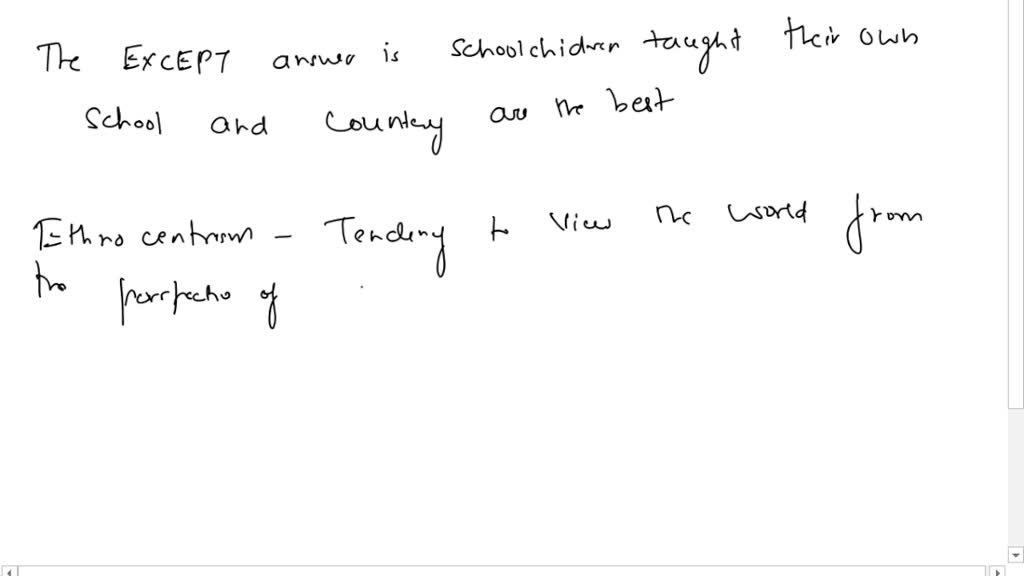 The EXCEPT answer is schoolchidren taught their own
school and Country are the best
Ethnocentrism - Tendeny to view the world from
the perspective of